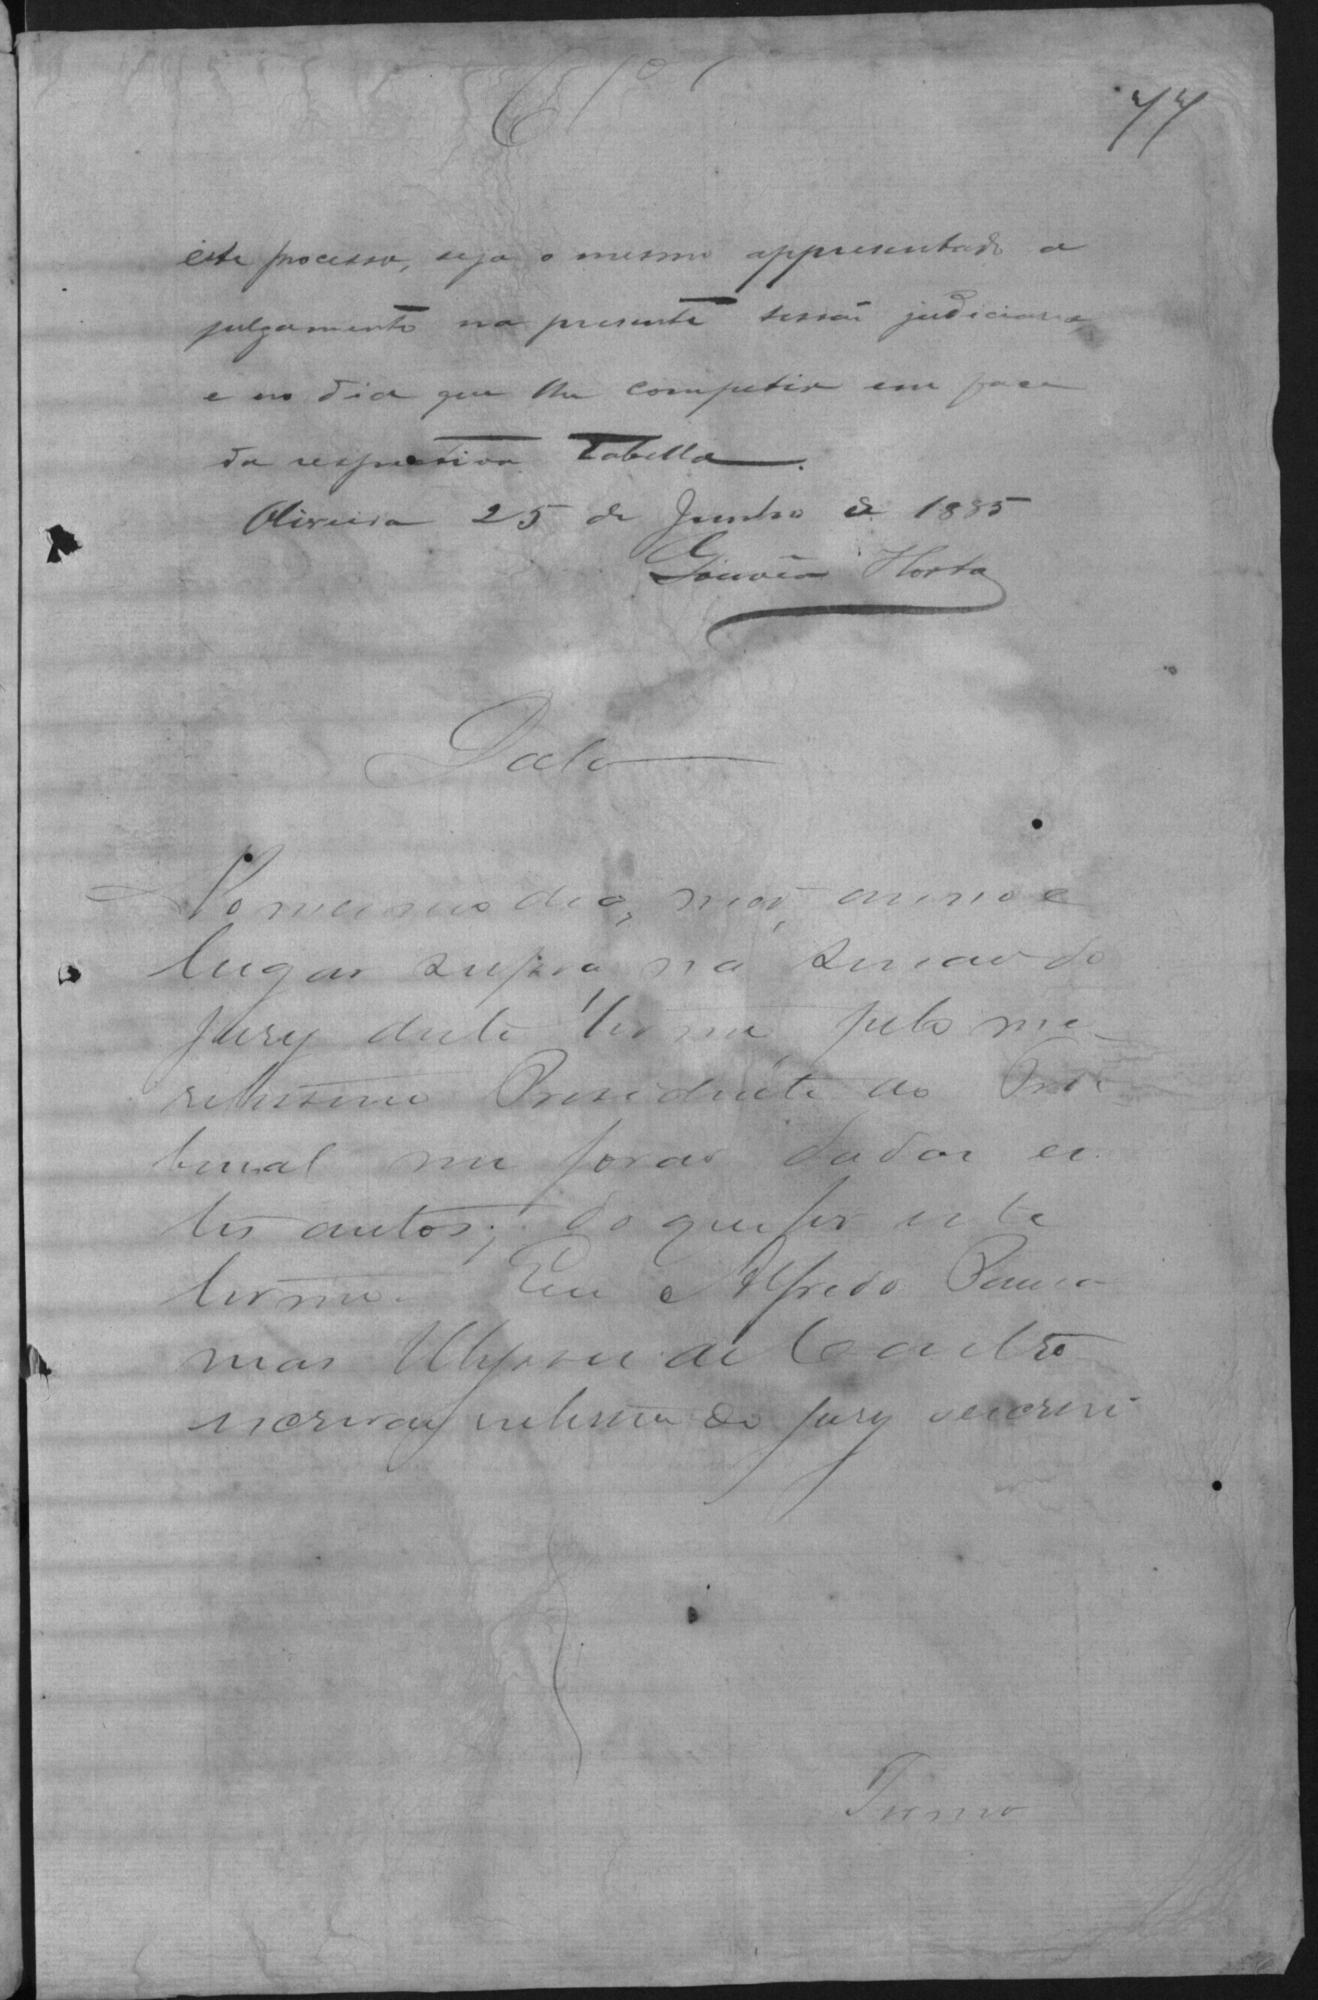 77
este processo, seja o mesmo appresentado a
julgamento na presente sessão judiciaria
e no dia que lhe competir em face
da respectiva Tabella.
Oliveira 25 de Junho de 1885
Gouvêa Horta
Data
No mesmo dia, mes, anno e
lugar supra na sessão do
Jury deste termo, pelo me-
retissimo Presidente do Tri-
bunal me forão dados es-
tes autos; do que fiz este
termo. Eu Alfredo
mas Ulysses de Castro
escrivão interino do Jury o escrevi
Termo